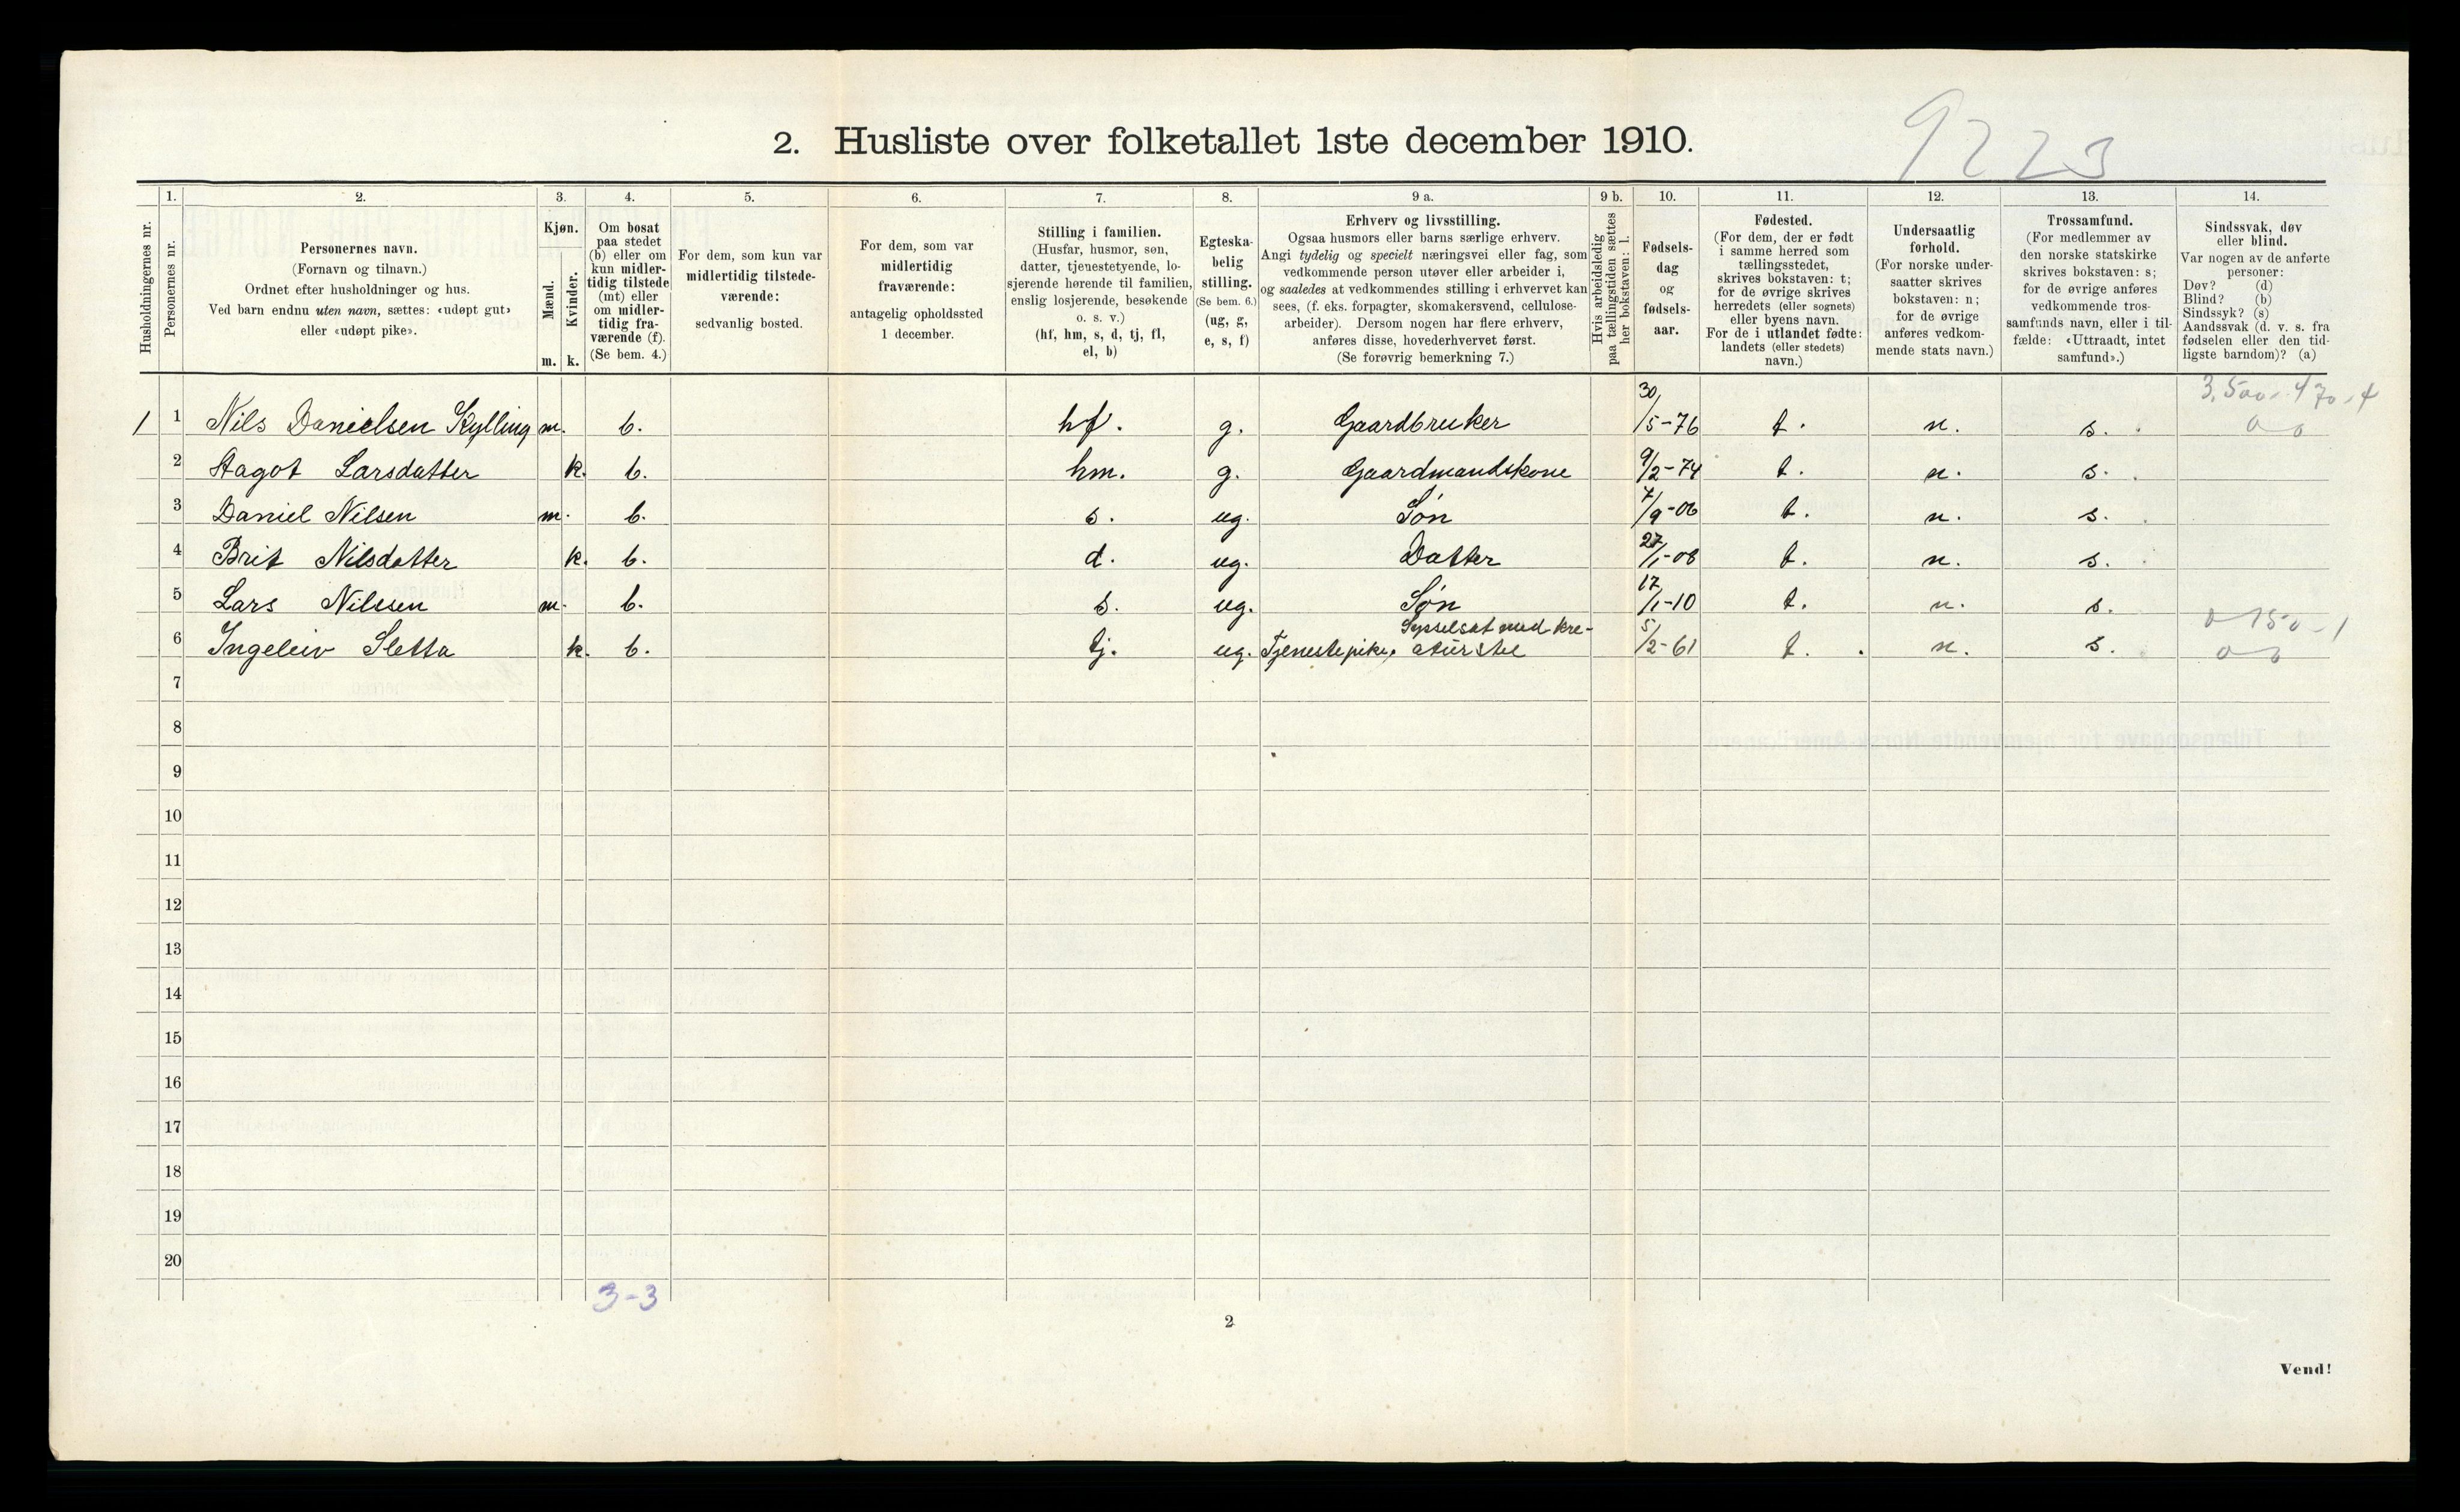 9223
2. Husliste over folketallet 1ste december 1910.
Husholdningernes nr.
1.
Personernes nr.
2.
Personernes navn.
(Fornavn og tilnavn.)
Ordnet efter husholdninger og hus.
Ved barn endnu uten navn, sættes: «udøpt gut»
eller «udøpt pike».
3.
Kjøn.
Mænd.
Kvinder.
m. k.
4.
Om bosat
paa stedet
(b) eller om
kun midler-
tidig tilstede
(mt) eller
om midler-
tidig fra-
værende (f).
(Se bem. 4.)
5.
For dem, som kun var
midlertidig tilstede-
værende:
sedvanlig bosted.
6.
For dem, som var
midlertidig
fraværende:
antagelig opholdssted
1 december.
7.
Stilling i familien.
(Husfar, husmor, søn,
datter, tjenestetyende, lo-
sjerende hørende til familien,
enslig losjerende, besøkende
o. s. v.)
(hf, hm, s, d, tj, fl,
el, b)
8.
Egteska-
belig
stilling.
(Se bem. 6.)
(ug, g,
e, s, f)
9 a.
Erhverv og livsstilling.
Ogsaa husmors eller barns særlige erhverv.
Angi tydelig og specielt næringsvei eller fag, som
vedkommende person utøver eller arbeider i,
og saaledes at vedkommendes stilling i erhvervet kan
sees, (f. eks. forpagter, skomakersvend, cellulose-
arbeider). Dersom nogen har flere erhverv,
anføres disse, hovederhvervet først.
(Se forøvrig bemerkning 7.)
9 b.
Hvis arbeidsledig
paa tællingstiden sættes
her bokstaven: l.
10.
Fødsels-
dag
og
fødsels-
aar.
11.
Fødested.
(For dem, der er født
i samme herred som
tællingsstedet,
skrives bokstaven: t;
for de øvrige skrives
herredets (eller sognets)
eller byens navn.
For de i utlandet fødte:
landets (eller stedets)
navn.)
12.
Undersaatlig
forhold.
(For norske under-
saatter skrives
bokstaven: n;
for de øvrige
anføres vedkom-
mende stats navn.)
13.
Trossamfund.
(For medlemmer av
den norske statskirke
skrives bokstaven: s;
for de øvrige anføres
vedkommende tros-
samfunds navn, eller i til-
fælde: «Uttraadt, intet
samfund».)
14.
Sindssvak, døv
eller blind.
Var nogen av de anførte
personer:
Døv? (d)
Blind? (b)
Sindssyk? (s)
Aandssvak (d. v. s. fra
fødselen eller den tid-
ligste barndom)? (a)
1 1 Nils Danielsen Kylling m. b. hf. g. Gaardbruker 30/5-76 t. n. s.
2 Aagot Larsdatter k. b. hm. g. Gaardmandskone 9/2-74 t. n. s.
3 Daniel Nilsen m. b. s. ug. Søn 7/9-06 t. n. s.
4 Brit Nilsdatter k. b. d. ug. Datter 27/1-08 t. n. s.
5 Lars Nilssen m. b. s. ug. Søn 17/1-10 t. n. s.
6 Ingeleiv Sletta k. b. tj. ug. Tjenestepike, Sysselsat med kre-
aturstel 5/2-61 t. n. s.
7
8
9
10
11
12
13
14
15
16
17
18
19
20
3-3
2
Vend!